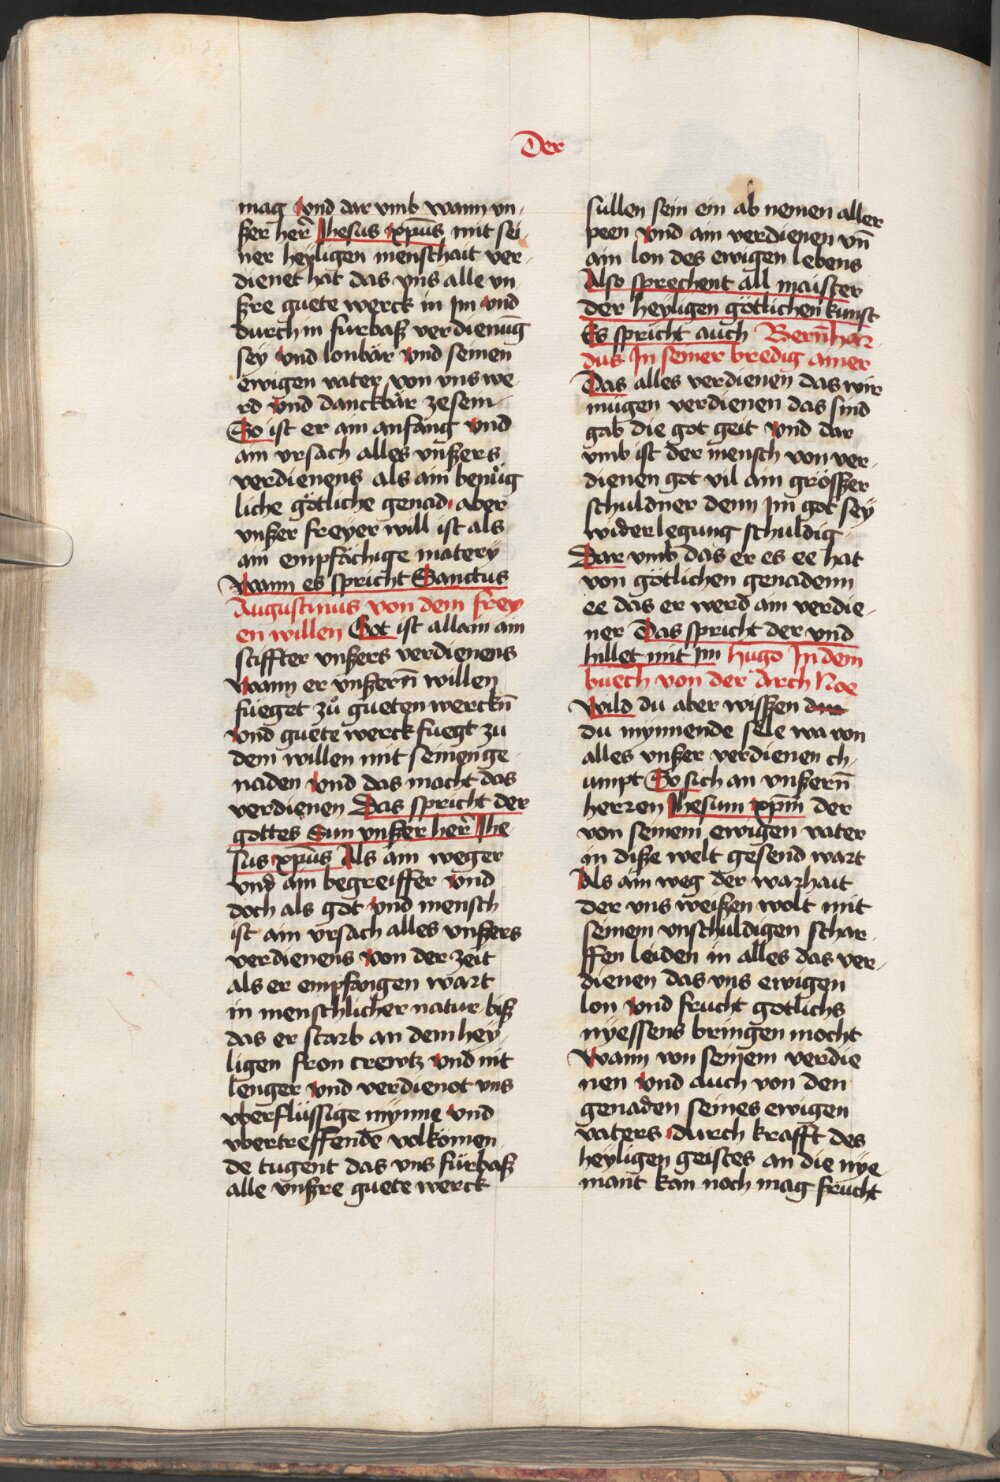 Der
mag und dar vmb wann vn-
ßer her̃ Jhesus xp̄us mit sei-
ner heyligen menschait ver-
dienet hat das vns alle vn-
ßre guete werck in jm vnd
durch in furbaß verdienūg
sey vnd lonbär vnd seinen
ewigen vater von vns we-
rd vnd danckbär zesein
So ist er ain anfang vnd
ain vrsach alles vnßers
verdienens als ain benüg
liche götliche genad aber
vnßer freyer will ist als
ain empfächige matery
Wann es spricht Sanctus
Augustinus von dem frey
en willen Got ist allain ain
stiffter vnßers verdienens
Wann er vnßern̄ willen
füeget zů gueten werckn̄
vnd guete werck fuegt zu
dem willen mit seinen ge
naden vnd das macht das
verdienen Das spricht der
gottes Sun vnßer her̃ Jhe
sus xp̄us Als ain weger
vnd ain begreiffer vnd
doch als got vnd mensch
ist ain vrsach alles vnßers
verdienens von der zeit
als er empfangen wart
in menschlicher natur biß
das er starb an dem hey
ligen fron crewtz vnd nit
lenger vnd verdienot vns
vberflüssige mynne vnd
vbertreffende volkomen
de tugent das vns fürbaß
alle vnßre guete werck
süllen sein ein ab nemen aller
peen vnd ain verdienen vn̄
ain lon des ewigen lebens
Also sprechent all maister
der heyligen götlichen kunst
Es spricht auch Bern̄har
dus Jn seiner bredig ainer
Das alles verdienen das wir
mugen verdienen das sind
gab die got geit vnd dar
vmb ist der mensch von ver-
dienen got vil ain grösser
schuldner denn jm got sey
widerlegung schuldig
Dar vmb das er es ee hat
von götlichen genadenn
ee das er werd ain verdie-
ner Das spricht der vnd
hillet mit jm hugo Jn dem
buech von der Arch Noe
Wild du aber wissen
du mynnende sele wa von
alles vnßer verdienen ch-
umpt So sich an vnßern̄
herren Jhesum xp̄m der
von seinem ewigen vater
in diße welt gesend wart
Als ain weg der warhait
der vns weißen wolt mit
seinem vnschuldigen schar
ffen leiden in alles das ver-
dienen das vns ewigen
lon vnd frucht gotlichs
nyessens bringen mocht
Wann von seinem verdie
nen vnd auch von den
genaden seines ewigen
vaters durch krafft des
heyligen geistes an die nye
mant kan noch mag frucht